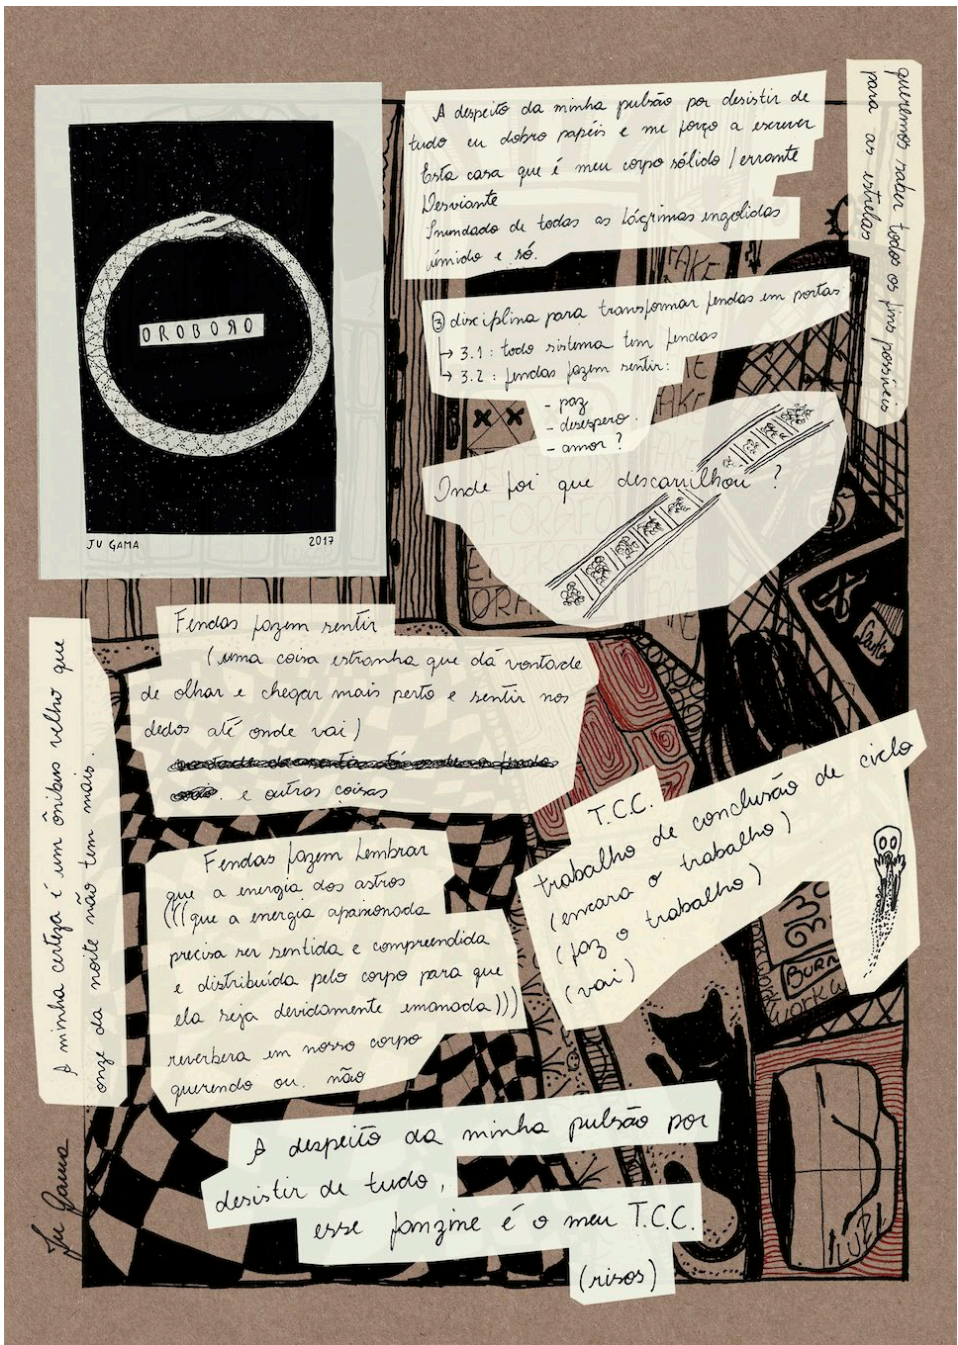 OROBORO
JU GAMA
2017
A despeito da minha pulsão por desistir de
tudo eu dobro papéis e me forço a escrever
Esta casa que é meu corpo sólido / errante
Desviante
Inundado de todas as lágrimas engolidas
úmido e só.
queremos saber todos os fins possíveis
para as estrelas
③ disciplina para transformar fendas em portas
→ 3.1: todo sistema tem fendas
→ 3.2: fendas fazem sentir:
- paz
- desespero.
- amor?
Onde foi que descarrilhou?
Fendas fazem sentir
(uma coisa estranha que dá vontade
de olhar e chegar mais perto e sentir nos
dedos até onde vai)
e outras coisas
A minha certeza é um ônibus velho que
onze da noite não tem mais.
Fendas fazem lembrar
que a energia dos astros
(((que a energia apaixonada
precisa ser sentida e compreendida
e distribuída pelo corpo para que
ela seja devidamente emanada)))
reverbera em nosso corpo
querendo ou não
T.C.C.
trabalho de conclusão de ciclo
(encara o trabalho)
(faz o trabalho)
(vai)
A despeito da minha pulsão por
desistir de tudo,
esse fanzine é o meu T.C.C.
(risos)
Ju Gama
FAKE
BURN
WORK